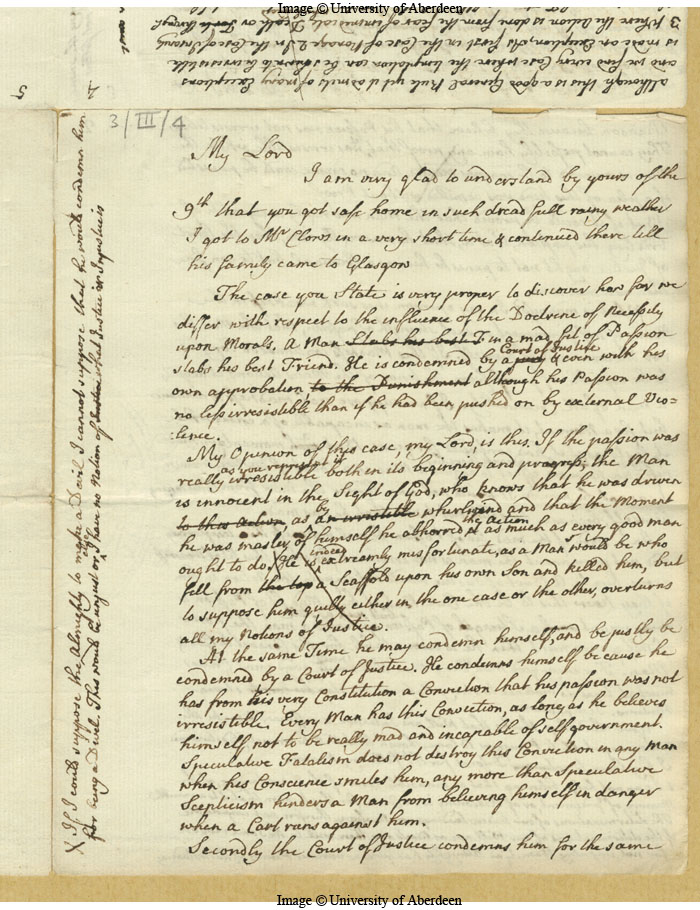 Image © University of Aberdeen
although this is a good General Rule yet it admits of many Exceptions
and we find every Case where the temptation can be shewn to be irresistible
is made an Exception, As first in the Case of Nonage 2 In the Case of Insanity
3 Where the Action is done from the fear of immediately Death or
4
5
3/III/4
My Lord
I am very glad to understand by yours of the
9th that you got safe home in such dreadfull rainy weather
I got to Mr Clows in a very short time & continued there till
his family came to Glasgow
The case you State is very proper to discover how far we
differ with respect to the influence of the Doctrine of Necessity
upon Morals. A Man stabs his best F in a mad fit of Passion
stabs his best Friend. He is condemned by a Court of Justice & even with his
own approbation to the Punishment although his Passion was
no less irresistible than if he had been pushed on by external Vio=
:lence.
My Opinion of this case, my Lord, is this. If the passion was
really as you represent it irresistible both in its beginning and progress, the Man
is innocent in the Sight of God, who knows that he was driven
to this action, as by an irresistible whirlwind and that the Moment
he was master of himself he abhorred the action as much as every good man
ought to do. He is indeed extreamly misfortunate, as a Man would be who
fell from the top a Scaffold upon his own Son and killed him, but
to suppose him guilty either in the one case or the other, overturns
all my Notions of Justice.
At the same Time he may condemn himself, and be justly be
condemned by a Court of Justice. He condemns himself because he
has from his very Constitution a Conviction that his passion was not
irresistible. Every Man has this Conviction, as long as he believes
himself not to be really mad and incapable of self government.
Speculative Fatalism does not destroy this Conviction in any Man
when his Conscience smites him, any more than Speculative
Scepticism hinders a Man from believing himself in danger
when a Cart runs against him.
Secondly the Court of Justice condemns him for the same
X If I could suppose the Almighty to make a Devil I cannot suppose that he would condemn him
for being a Devil. This would be unjust or else I have no Notion of Justice what Justice or Injustice is
Image © University of Aberdeen